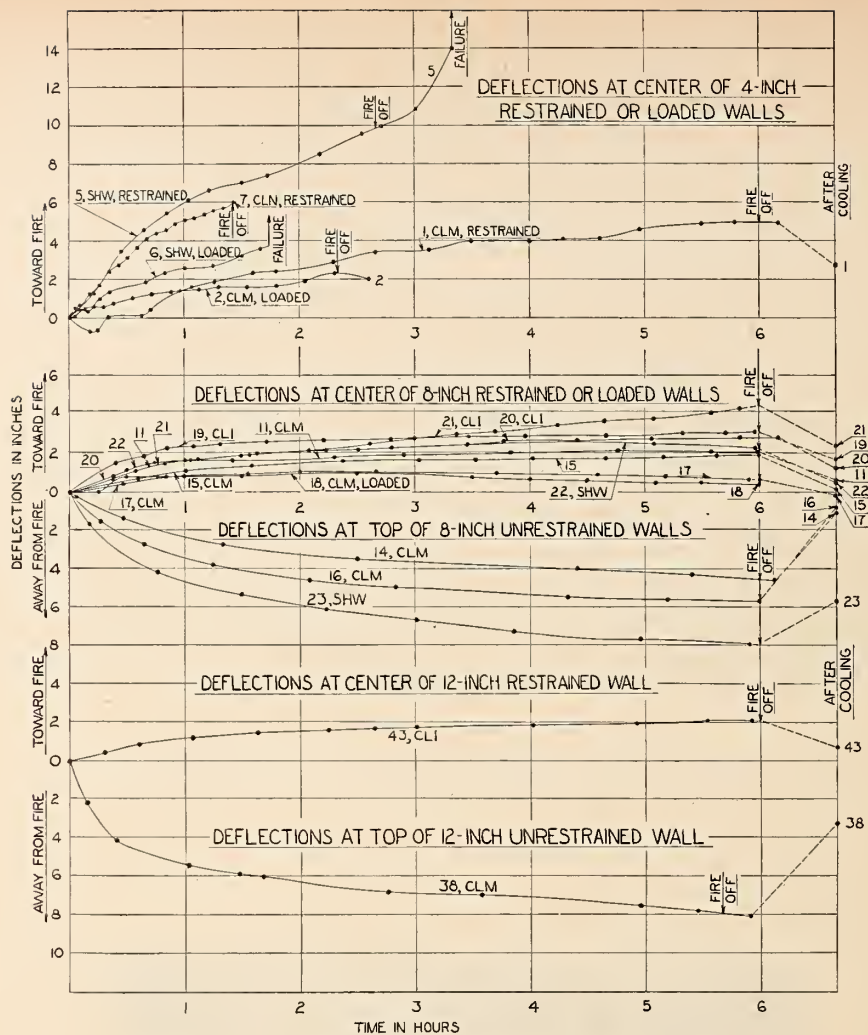 14
12
10
8
6
4
2
0
TOWARD FIRE
DEFLECTIONS AT CENTER OF 4-INCH
RESTRAINED OR LOADED WALLS
5
FAILURE
FIRE OFF
5, SHW, RESTRAINED
7, CLN, RESTRAINED
FIRE OFF
6, SHW, LOADED
FAILURE
FIRE OFF
2, CLM, LOADED
2
1, CLM, RESTRAINED
FIRE OFF
AFTER COOLING
1
1
2
3
4
5
6
DEFLECTIONS IN INCHES
TOWARD FIRE
AWAY FROM FIRE
6
4
2
0
2
4
6
8
DEFLECTIONS AT CENTER OF 8-INCH RESTRAINED OR LOADED WALLS
FIRE OFF
20
22
11
21
19, CL1
11, CLM
21, CL1
20, CL1
17, CLM
15, CLM
18, CLM, LOADED
15
22, SHW
17
18
21
19
20
11
22
15
17
16
14
DEFLECTIONS AT TOP OF 8-INCH UNRESTRAINED WALLS
14, CLM
16, CLM
23, SHW
FIRE OFF
23
TOWARD FIRE
4
2
0
DEFLECTIONS AT CENTER OF 12-INCH RESTRAINED WALL
43, CL1
FIRE OFF
AFTER COOLING
43
AWAY FROM FIRE
2
4
6
8
10
DEFLECTIONS AT TOP OF 12-INCH UNRESTRAINED WALL
38, CLM
FIRE OFF
38
1
2
3
4
5
6
TIME IN HOURS